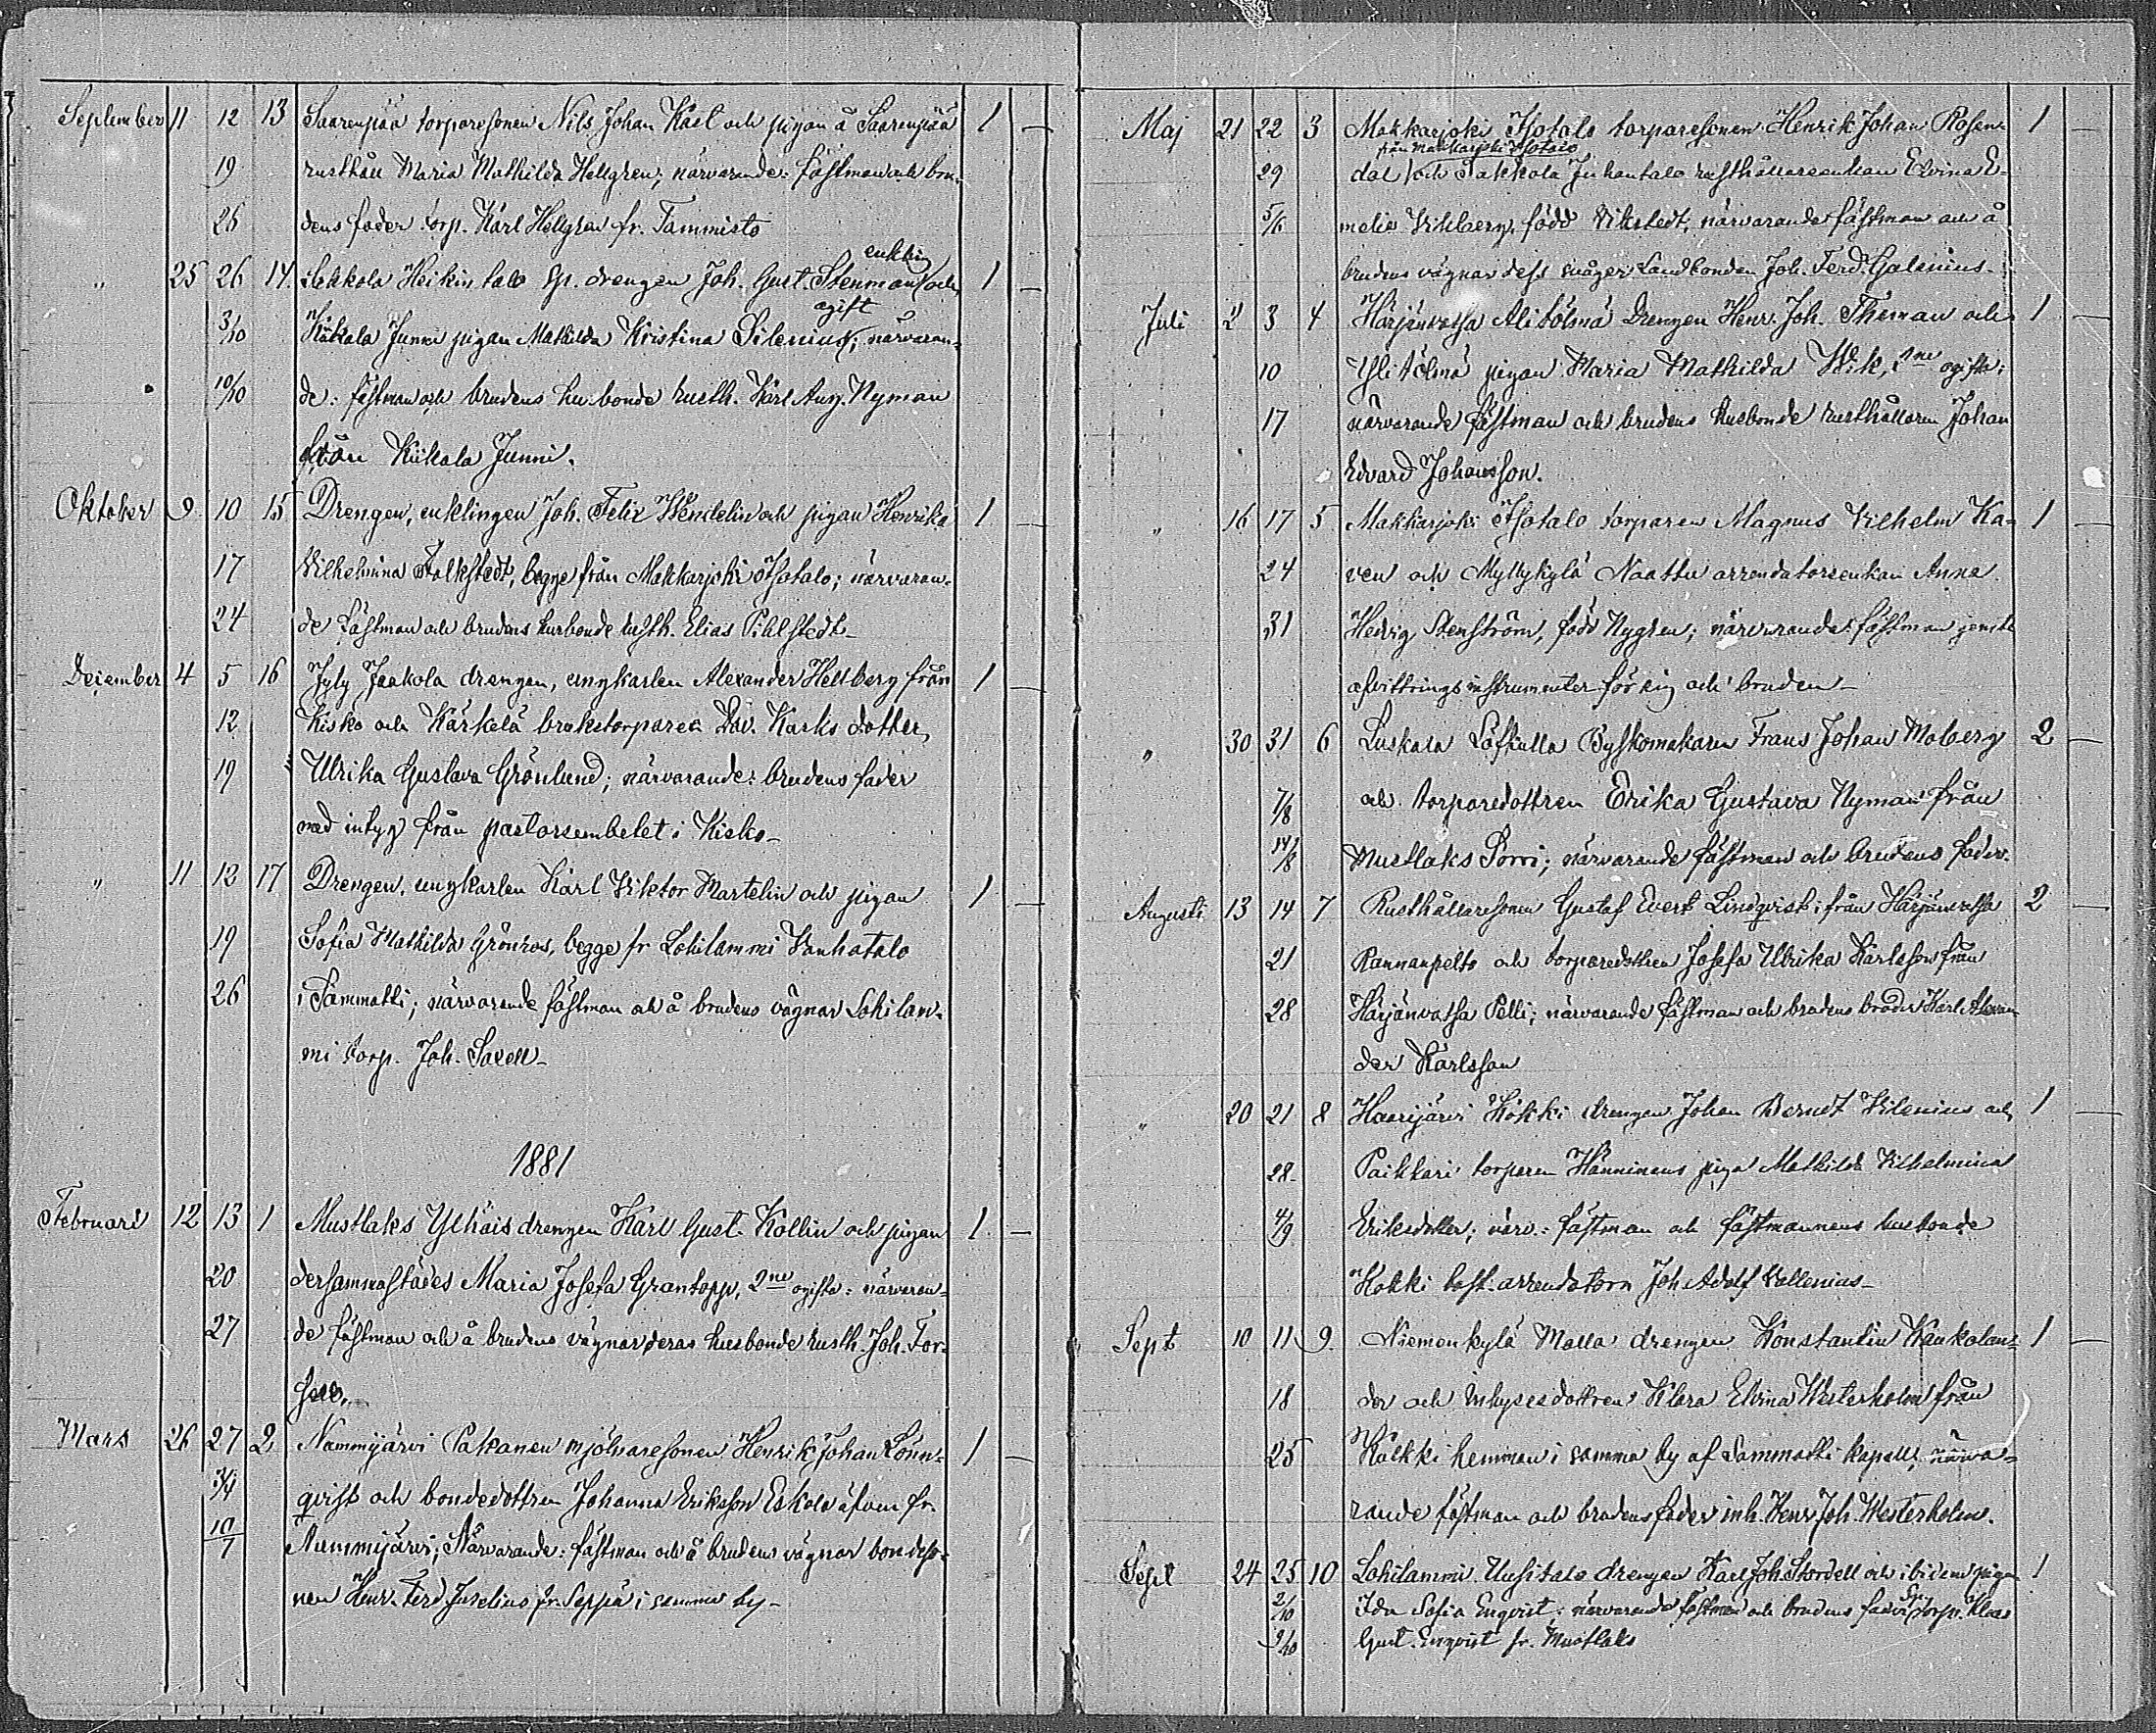 September 11 12 13 Saarenpää torparesonen Nils Johan Kast och pigan å Saarenpää 1 —
19 rusthåll Maria Mathilda Hellgren; närvarande: fästman och bru-
26 dens fader torp. Karl Hellgren fr. Tammisto
enkling
" 25 26 14 Lekkola Heikin talo sp. drengen Joh. Gust. Stenman och 1 —
ogift
3/10 Kiikala Junni pigan Mathilda Kristina Silenius; närvaran-
10/10 de: fästman och brudens husbonde rusth. Karl Aug. Nyman
från Kiikala Junni.
Oktober 9 10 15 Drengen, enklingen Joh. Felix Wendelin och pigan Henrika 1 —
17 Vilhelmina Falkstedt, begge från Makkarjoki Isotalo; närvaran-
24 de fästman och brudens husbonde rusth. Elias Pihlstedt —
December 4 5 16 Jyly Jaakola drengen, ungkarlen Alexander Hellberg från 1 —
12 Kisko och Kärkelä brukstorparen Dav. Karks dotter,
19 Ulrika Gustava Grönlund; närvarande: brudens fader
med intyg från pastorsembetet i Kisko —
" 11 12 17 Drengen, ungkarlen Karl Viktor Martelin och pigan 1 —
19 Sofia Mathilda Grönroos, begge fr. Lohilammi Vanhatalo
26 i Sammatti; närvarande fästman och å brudens vägnar Lohilam-
mi torp. Joh. Saxell —
1881
Februari 12 13 1 Mustlaks Ylhäis drengen Karl Gust. Kollin och pigan 1 —
20 dersammastädes Maria Josefa Grantopp, 2ne ogifta: närvaran-
27 de fästman och å brudens vägnar deras husbonde rusth. Joh. For-
sell.
Mars 26 27 2 Nammijärvi Pakanen mjölnaresonen Henrik Johan Lönn- 1 —
3/4 qvist och bondedottren Johanna Eriksson Eskola äfven fr.
10/7 Nummijärvi; Närvarande: fästman och å brudens vägnar bondeso-
nen Henr. Ferd. Juselius fr. Seppä i samma by —
Maj 21 22 3 Makkarjoki Isotalo torparesonen Henrik Johan Rosen- 1 —
från Makkarjoki Isotalo
29 dal och Pakkola Juhantalo rusthållareenkan Elvina E-
5/6 melie Vikberg, född Vikstedt, närvarande fästman och å
brudens vägnar dess svåger Landbonden Joh. Ferd. Galenius.
Juli 2 3 4 Härjänvatsa Alitölmä Drengen Henr. Joh. Thiman och 1 —
10 Ylitölmä pigan Maria Mathilda Wik, 2ne ogifta;
17 närvarande fästman och brudens husbonde rusthållaren Johan
Edvard Johansson.
" 16 17 5 Makkarjoki Isotalo torparen Magnus Vilhelm Ka- 1 —
24 ven och Myllykylä Naattu arrendatorsenkan Anna
31 Hedvig Stenström, född Nygren; närvarande: fästman jemte
afvittringsinstrumenter för sig och bruden —
" 30 31 6 Luskala Löfkulla Byskomakaren Frans Johan Moberg 2 —
7/8 och torparedottren Erika Gustava Nyman från
14/8 Mustlaks Sorri; närvarande fästman och brudens fader.
Augusti 13 14 7 Rusthållaresonen Gustaf Evert Lindqvist från Härjänvatsa 2 —
21 Rannanpelto och torparedottren Josefa Ulrika Karlsson från
28 Härjänvatsa Pelli; närvarande fästman och brudens broder Karl Alexan
der Karlsson
" 20 21 8 Haarijärvi Kökki drengen Johan Berndt Vilenius och 1 —
28 Paikkari torparen Hänninens piga Mathilda Vilhelmina
4/9 Eriksdotter; närv.: fästman och fästmannens husbonde
Kökki arrendatorn Joh. Adolf Vallenius —
Sept 10 11 9 Niemenkylä Malla drengen Konstantin Kaukolan- 1 —
18 der och inhysesdottren Klara Elvina Westerholm från
25 Kälkki hemman i samma by af Sammatti kapell; närva-
rande fästman och brudens fader inh. Henr. Joh. Westerholm.
Sept 24 25 10 Lohilammi Uusitalo drengen Karl Joh. Stordell och ibidem pigan 1
2/10 Ida Sofia Enqvist: närvarande fästman och brudens fader Sp. torp. Klas
9/10 Gust. Enqvist fr. Mustlaks